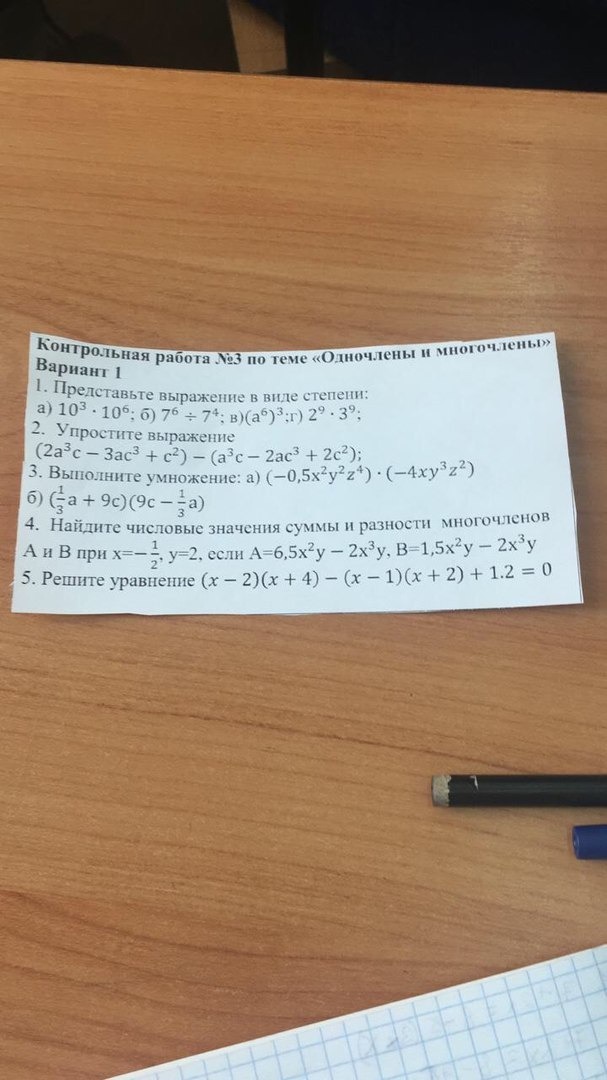 Контрольная работа №3 по теме «Одночлены и многочлены»
Вариант 1
1. Представьте выражение в виде степени:
а) 10³ · 10⁶; б) 7⁶ ÷ 7⁴; в)(а⁶)³;г) 2⁹ · 3⁹;
2. Упростите выражение
(2а³с − 3ас³ + с²) − (а³с − 2ас³ + 2с²);
3. Выполните умножение: а) (−0,5х²у²z⁴) · (−4ху³z²)
б) (1/3 а + 9с)(9с − 1/3 а)
4. Найдите числовые значения суммы и разности многочленов
А и В при х=−1/2, у=2, если А=6,5х²у − 2х³у, В=1,5х²у − 2х³у
5. Решите уравнение (x − 2)(x + 4) − (x − 1)(x + 2) + 1.2 = 0